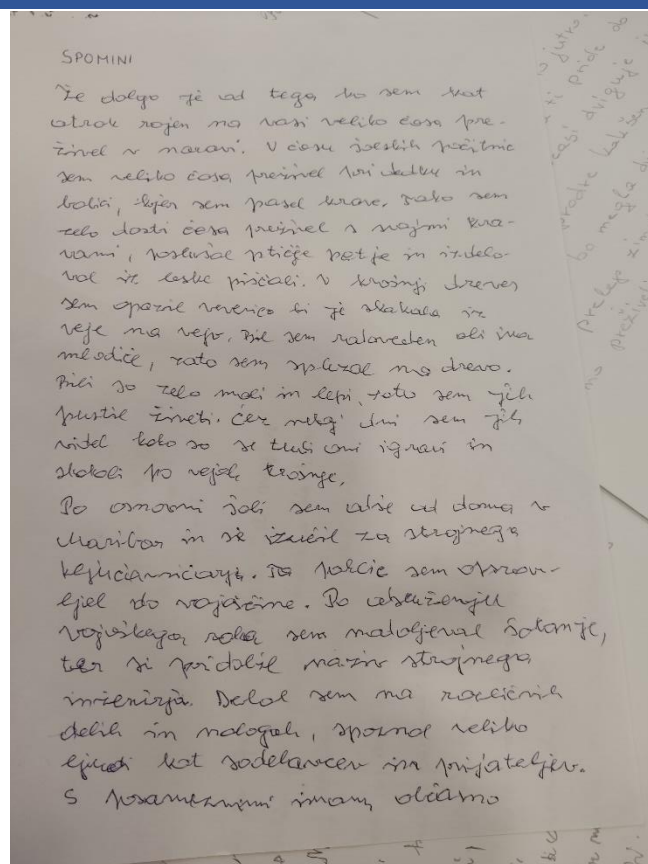 SPOMINI
Že dolgo je od tega ko sem kot
otrok rojen na vasi veliko časa pre-
živel v naravi. V času šolskih počitnic
sem veliko časa preživel pri dedku in
babici, kjer sem pasel krave. Tako sem
zelo dosti časa preživel s svojmi kra-
vami, poslušal ptičje petje in izdelo-
val iz leske piščali. V krošnji dreves
sem opazil veverico ki je skakala iz
veje na vejo. Bil sem radoveden ali ima
mladiče, zato sem splezal na drevo.
Bili so zelo mali in lepi, zato sem jih
pustil živeti. Čez nekaj dni sem jih
videl kako so se tudi oni igrali in
skakali po vejah krošnje.
Po osnovni šoli sem odše od doma v
Maribor in se izučil za strojnega
ključavničarja. Ta poklic sem oprav-
ljal do vojaščine. Po odsluženju
vojaškega roka sem nadoljeval šolanje,
ter si pridobil naziv strojnega
inženirja. Delal sem na različnih
delih in nalogah, spoznal veliko
ljudi kot sodelavcev in prijateljev.
S posameznimi imam občasno
jutro.
pride do
dviguje
kakšen
bo megla
Prelep zim